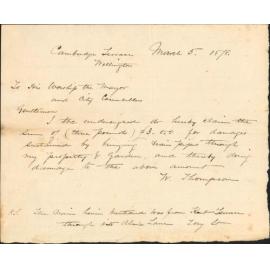 Cambridge Terrace March 5. 187
Wellington
To His Worship the Mayor
and City Councillors
Gentlemen
I the undersigned do hereby claim the
sum of (three pounds) £3.0.0 for damages
sustained by bringing drain pipes through
my property & Garden, and thereby doing
damage to the above amount
W. Thompson
The drain was from Kent Terrace
through to Lane